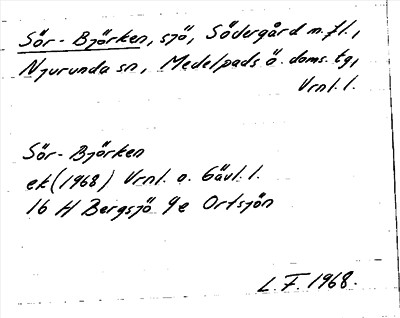 Sör-Björken, sjö, Södergård m.fl.,
Njurunda sn, Medelpads ö. doms. tg,
Vrnl. l.
Sör-Björken
ek (1968) Vrnl. o. Gävl. l.
16 H Bergsjö 9e Ortsjön
L. F. 1968.